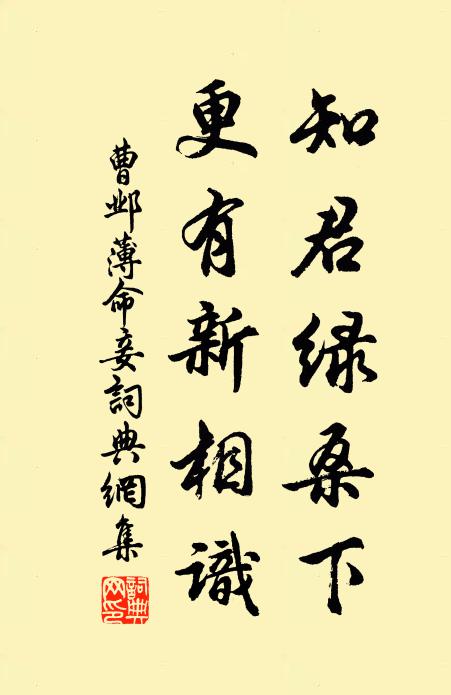 知君緑桑下
更有新相識
曹邺薄命妾詞典網集
詞典网印